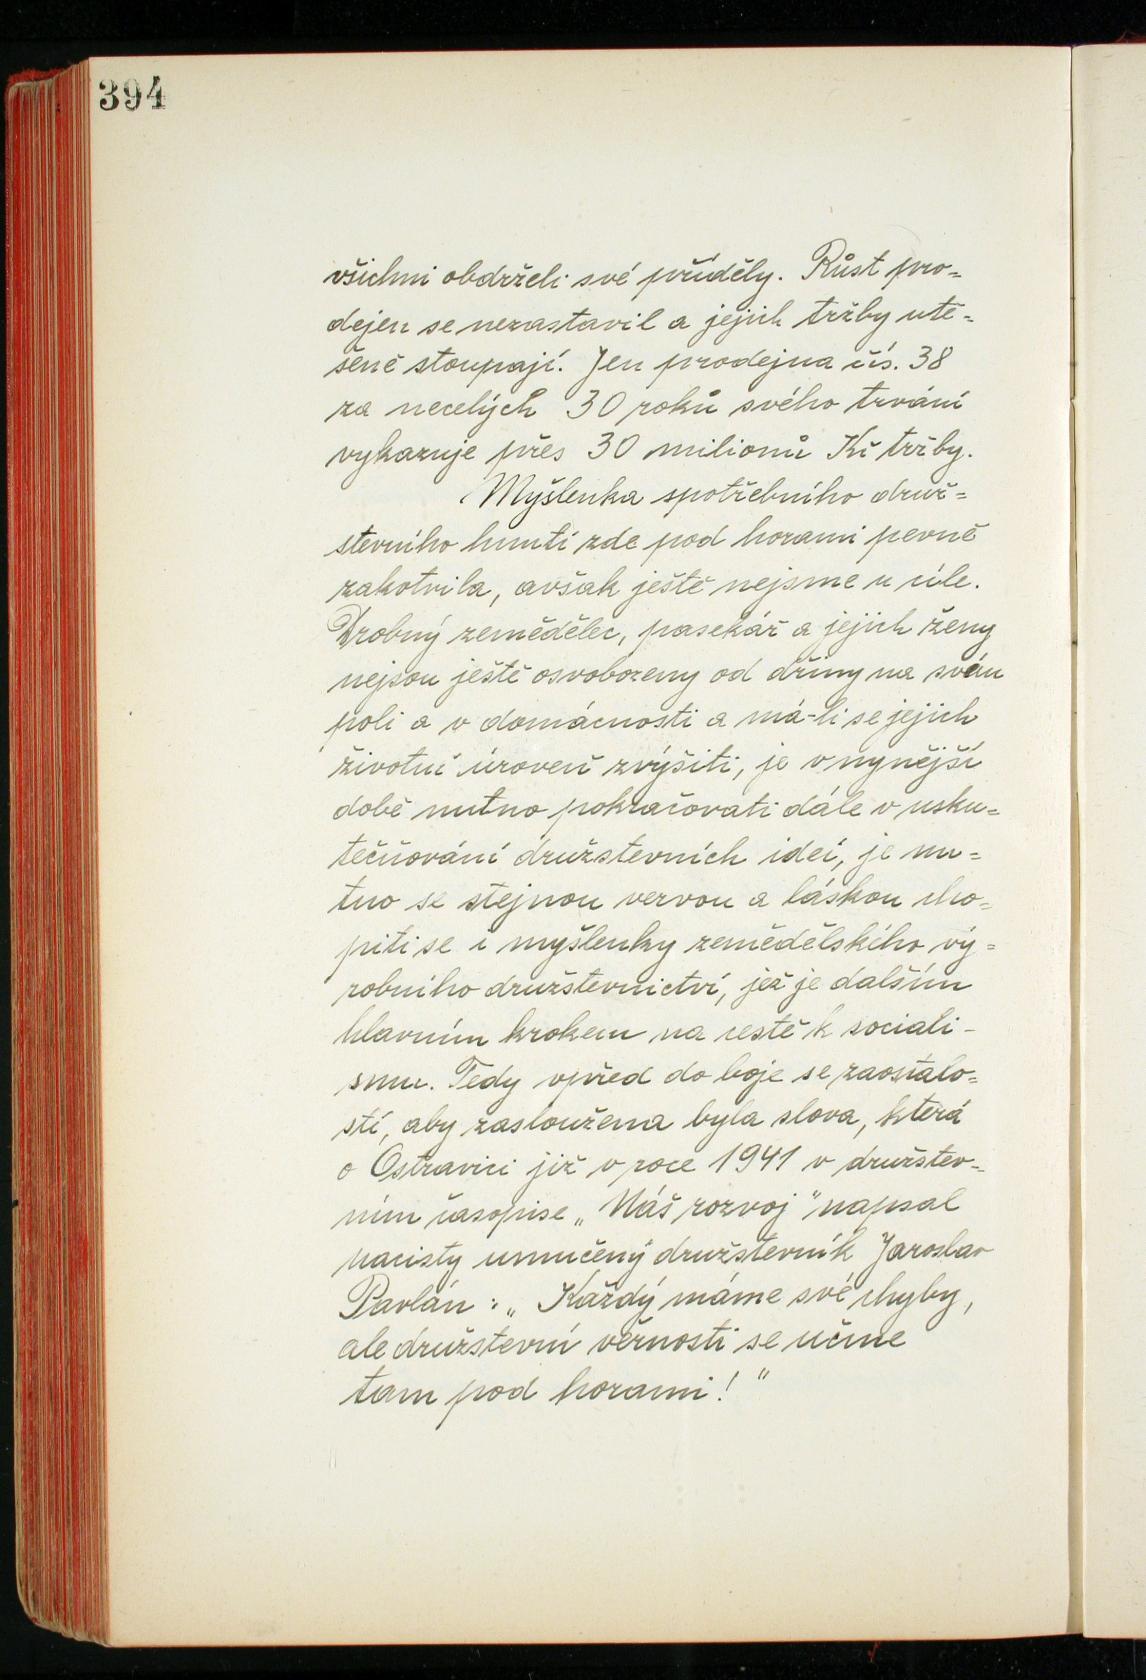 394
všichni obdrželi své příděly. Růst pro=
dejen se nezastavil a jejich tržby utě=
šeně stoupají. Jen prodejna čís. 38
za necelých 30 roků svého trvání
vykazuje přes 30 milionů Kč tržby.
Myšlenka spotřebního druž=
stevního hnutí zde pod horami pevně
zakotvila, avšak ještě nejsme u cíle.
Drobný zemědělec, pasekář a jejich ženy
nejsou ještě osvobozeny od dřiny na svém
poli a v domácnosti a má-li se jejich
životní úroveň zvýšiti, je v nynější
době nutno pokračovati dále v usku=
tečňování družstevních ideí, je nu=
tno se stejnou vervou a láskou cho=
piti se i myšlenky zemědělského vý=
robního družstevnictví, jež je dalším
hlavním krokem na cestě k sociali-
smu. Tedy vpřed do boje se zaostalo=
stí, aby zasloužena byla slova, která
o Ostravici již v roce 1941 v družstev=
ním časopise „Náš rozvoj" napsal
nacisty umučený družstevník Jaroslav
Pavlán: „Každý máme své chyby,
ale družstevní věrnosti se učme
tam pod horami!"